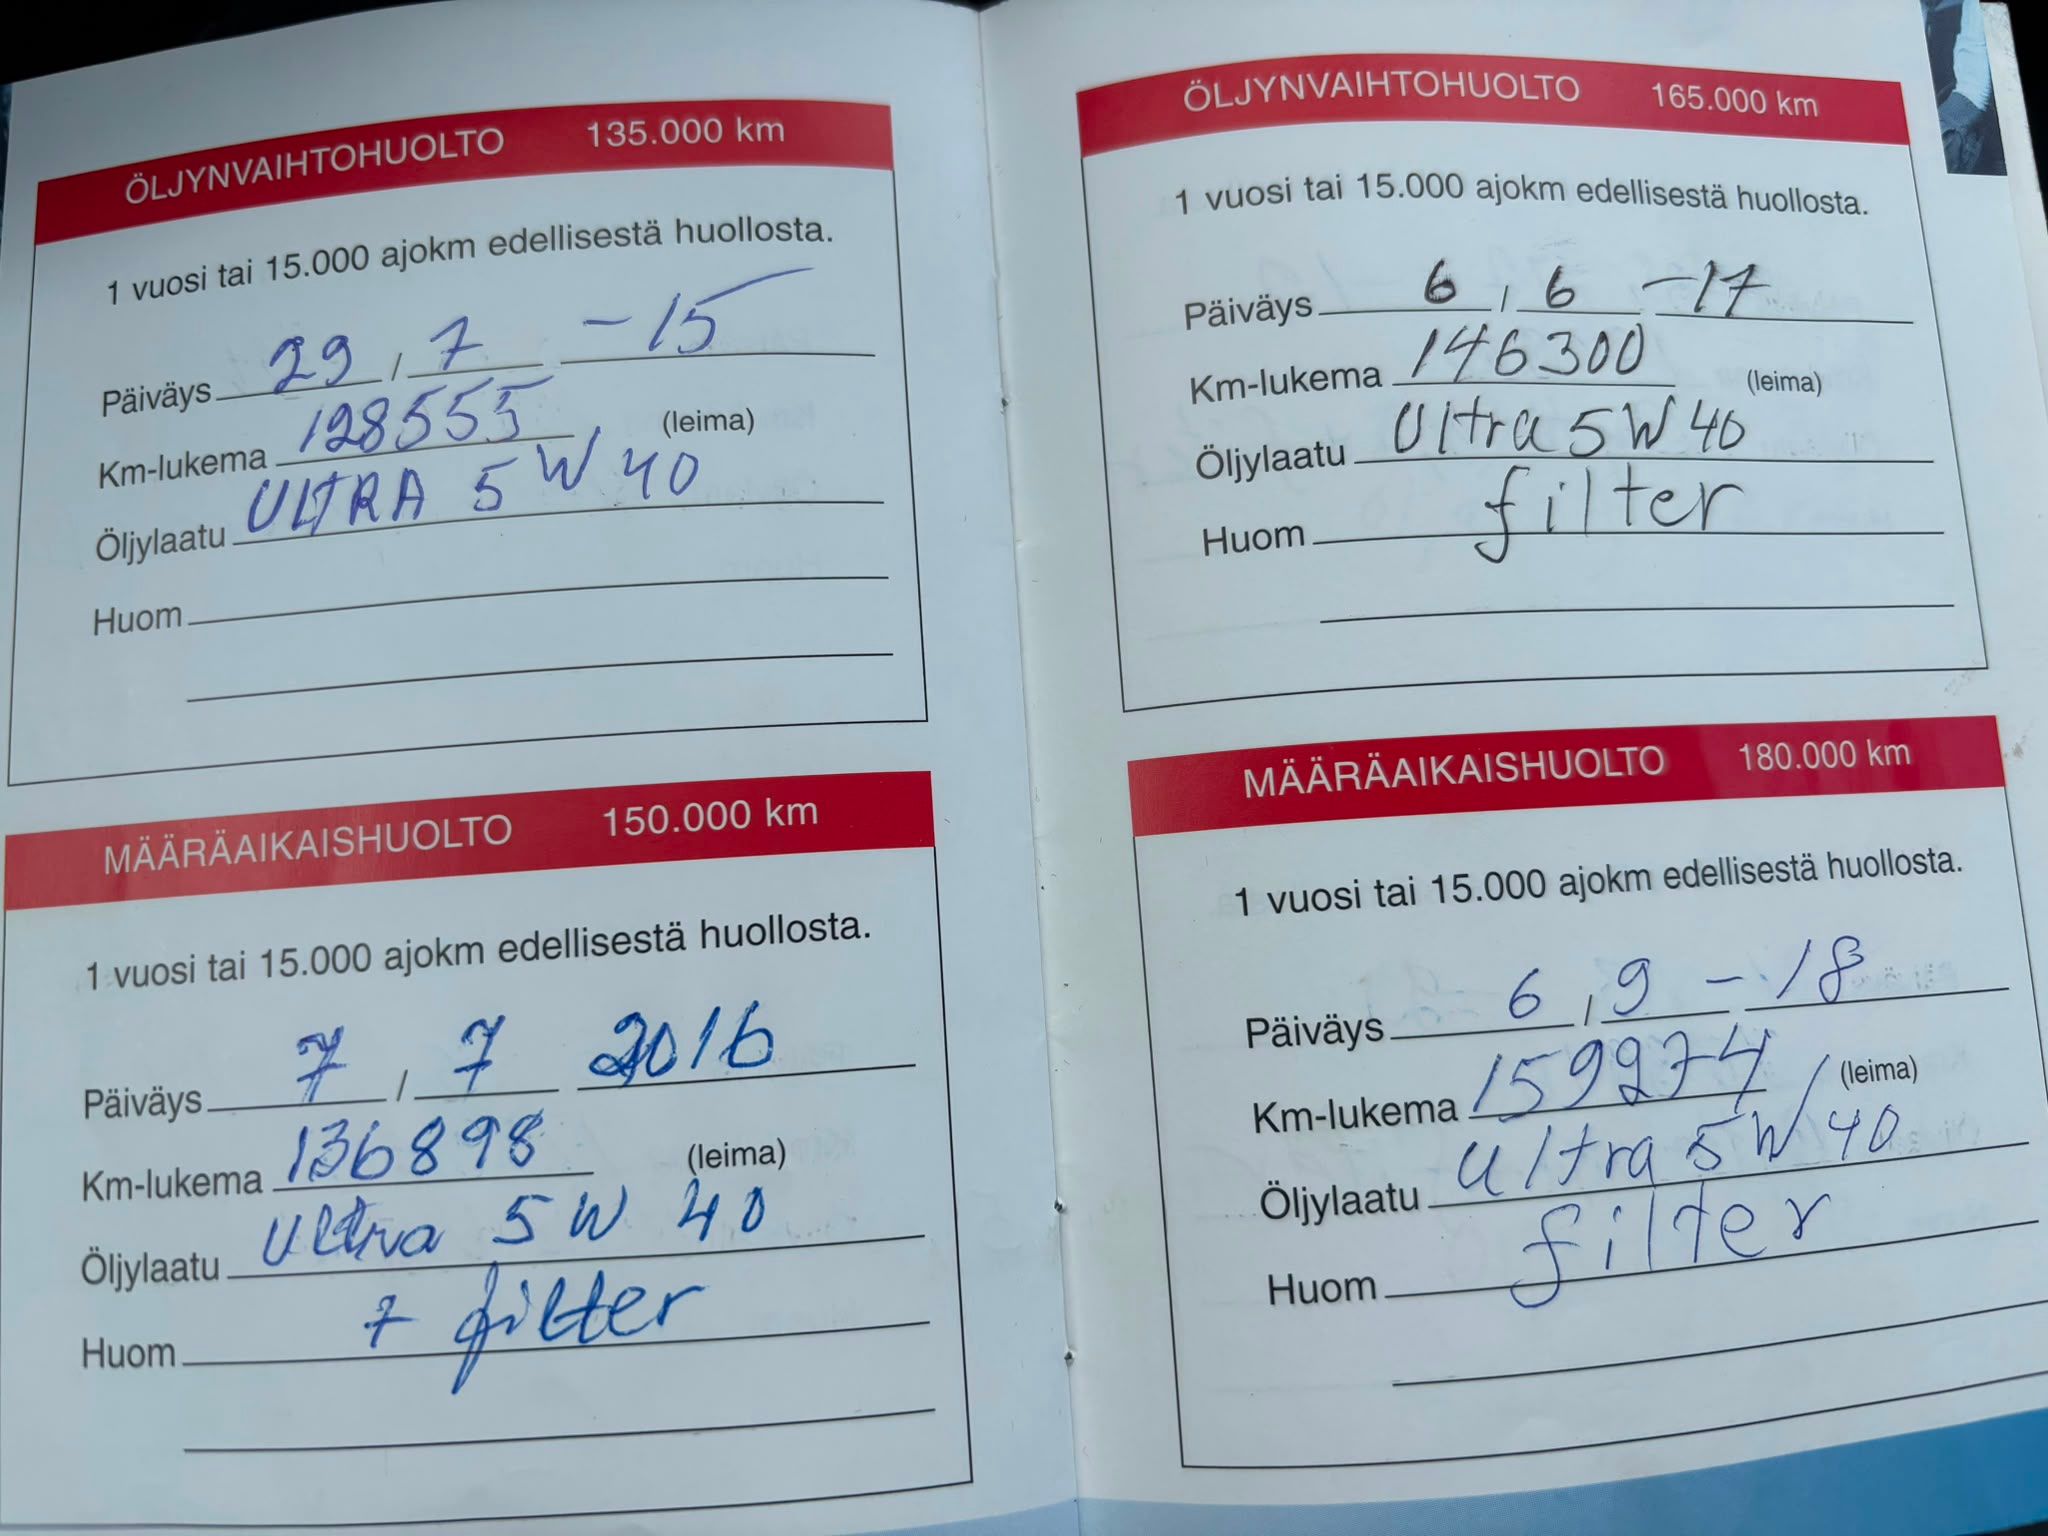 ÖLJYNVAIHTOHUOLTO 135.000 km
1 vuosi tai 15.000 ajokm edellisestä huollosta.
Päiväys 29 / 7 -15
Km-lukema 128555 (leima)
Öljylaatu ULTRA 5W40
Huom
MÄÄRÄAIKAISHUOLTO 150.000 km
1 vuosi tai 15.000 ajokm edellisestä huollosta.
Päiväys 7 / 7 2016
Km-lukema 136898 (leima)
Öljylaatu Ultra 5W 40
Huom + filter
ÖLJYNVAIHTOHUOLTO 165.000 km
1 vuosi tai 15.000 ajokm edellisestä huollosta.
Päiväys 6 / 6 -17
Km-lukema 146300 (leima)
Öljylaatu Ultra 5W40
Huom filter
MÄÄRÄAIKAISHUOLTO 180.000 km
1 vuosi tai 15.000 ajokm edellisestä huollosta.
Päiväys 6 / 9 -18
Km-lukema 159274 (leima)
Öljylaatu Ultra 5W40
Huom filter